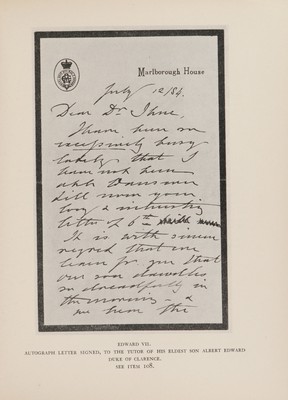 Marlborough House
July 12/84.
Dear Dr Ihne,
I have been so
excessively busy
lately that I
have not been
able to answer
till now your
long & interesting
letter of 6th
It is with sincere
regret that we
learn from you that
our son dawdles
so dreadfully in
the morning - &
we hear the
EDWARD VII.
AUTOGRAPH LETTER SIGNED; TO THE TUTOR OF HIS ELDEST SON ALBERT EDWARD
DUKE OF CLARENCE.
SEE ITEM 108.